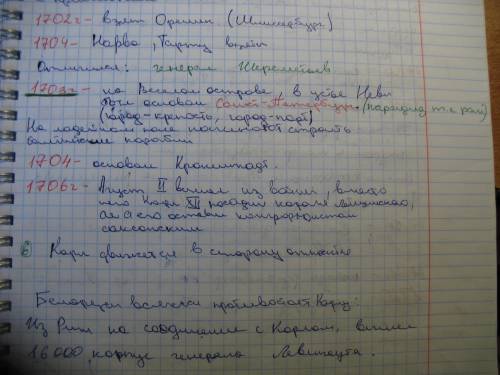 1702г - взят Орешек (Шлиссельбург)
1704 - Нарва, Тарту взяты
Отличился: генерал Шереметьев
1703г - на Веселом острове, в устье Невы
был основан Санкт-Петербург. (парадиз т.е рай)
(город-крепость, город-порт)
На ладейном поле начинают строить
балтийские корабли
1704 - основан Кронштадт.
1706г - Август II вышел из войны, вместо
него Карл XII посадил короля Лещинского,
а его оставил курфюрстом
саксонским
Карл движется в сторону
Белорусы всячески противостоят Карлу:
Из Риги на соединение с Карлом, вышел
16 000, корпус генерала Левенгаупта.